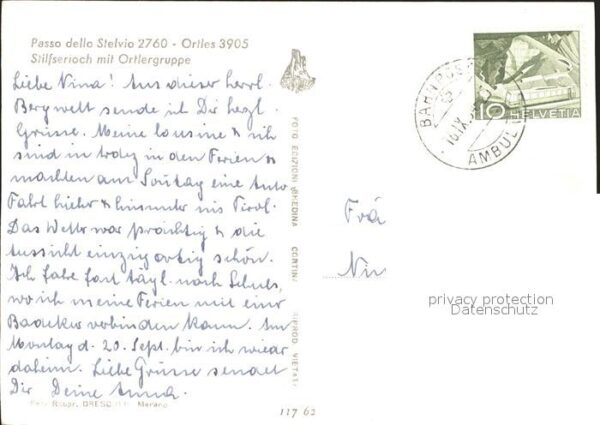 Passo dello Stelvio 2760 - Ortles 3905
Stilfserioch mit Ortlergruppe
Liebe Nina! Aus dieser herrl.
Bergwelt sende ich Dir herzl.
Grüsse. Meine Cousine & ich
sind in in den Ferien &
machten am Sonntag eine Auto
Fahrt hieher & hinunter ins Tirol.
Das Wetter war prächtig & die
Aussicht einzig artig schön.
Ich fahre fast tägl. nach Schuls,
wo ich meine Ferien mit einer
Badekur verbinden kann. Am
Montag d. 20. Sept. bin ich wieder
daheim. Liebe Grüsse sendet
Dir Deine Anna.
Merano
FOTO EDIZIONI GHEDINA CORTINA RIPROD. VIETATA
117 62
BAHNPOST
AMBUL
10 HELVETIA
Frä
privacy protection
Datenschutz